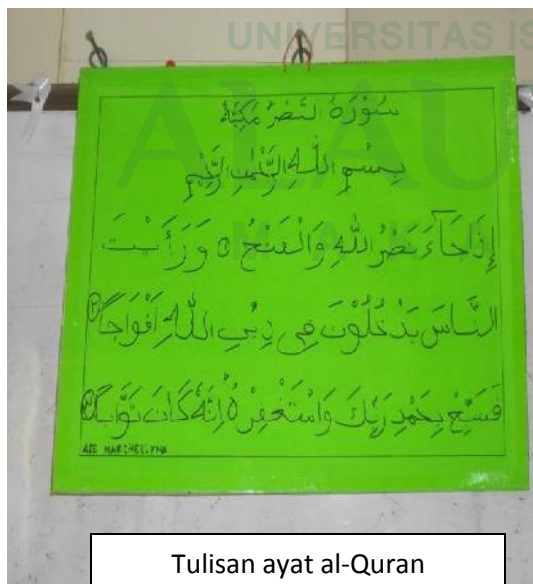 UNIVERSITAS IS
ALAU
سُوْرَةُ النَّصْرُ مَكِيَّةٌ
بِسْمِ اللّٰهِ الرَّحْمٰنِ الرَّحِيْمِ
إِذَا جَآءَ نَصْرُ اللّٰهِ وَالْفَتْحُ ۝ وَرَأَيْتَ
النَّاسَ يَدْخُلُوْنَ فِى دِيْنِ اللّٰهِ اَفْوَاجًا ٢
فَسَبِّحْ بِحَمْدِ رَبِّكَ وَاسْتَغْفِرْهُ اِنَّهٗ كَانَ تَوَّابًا ٣
MARCHELLYNA
Tulisan ayat al-Quran